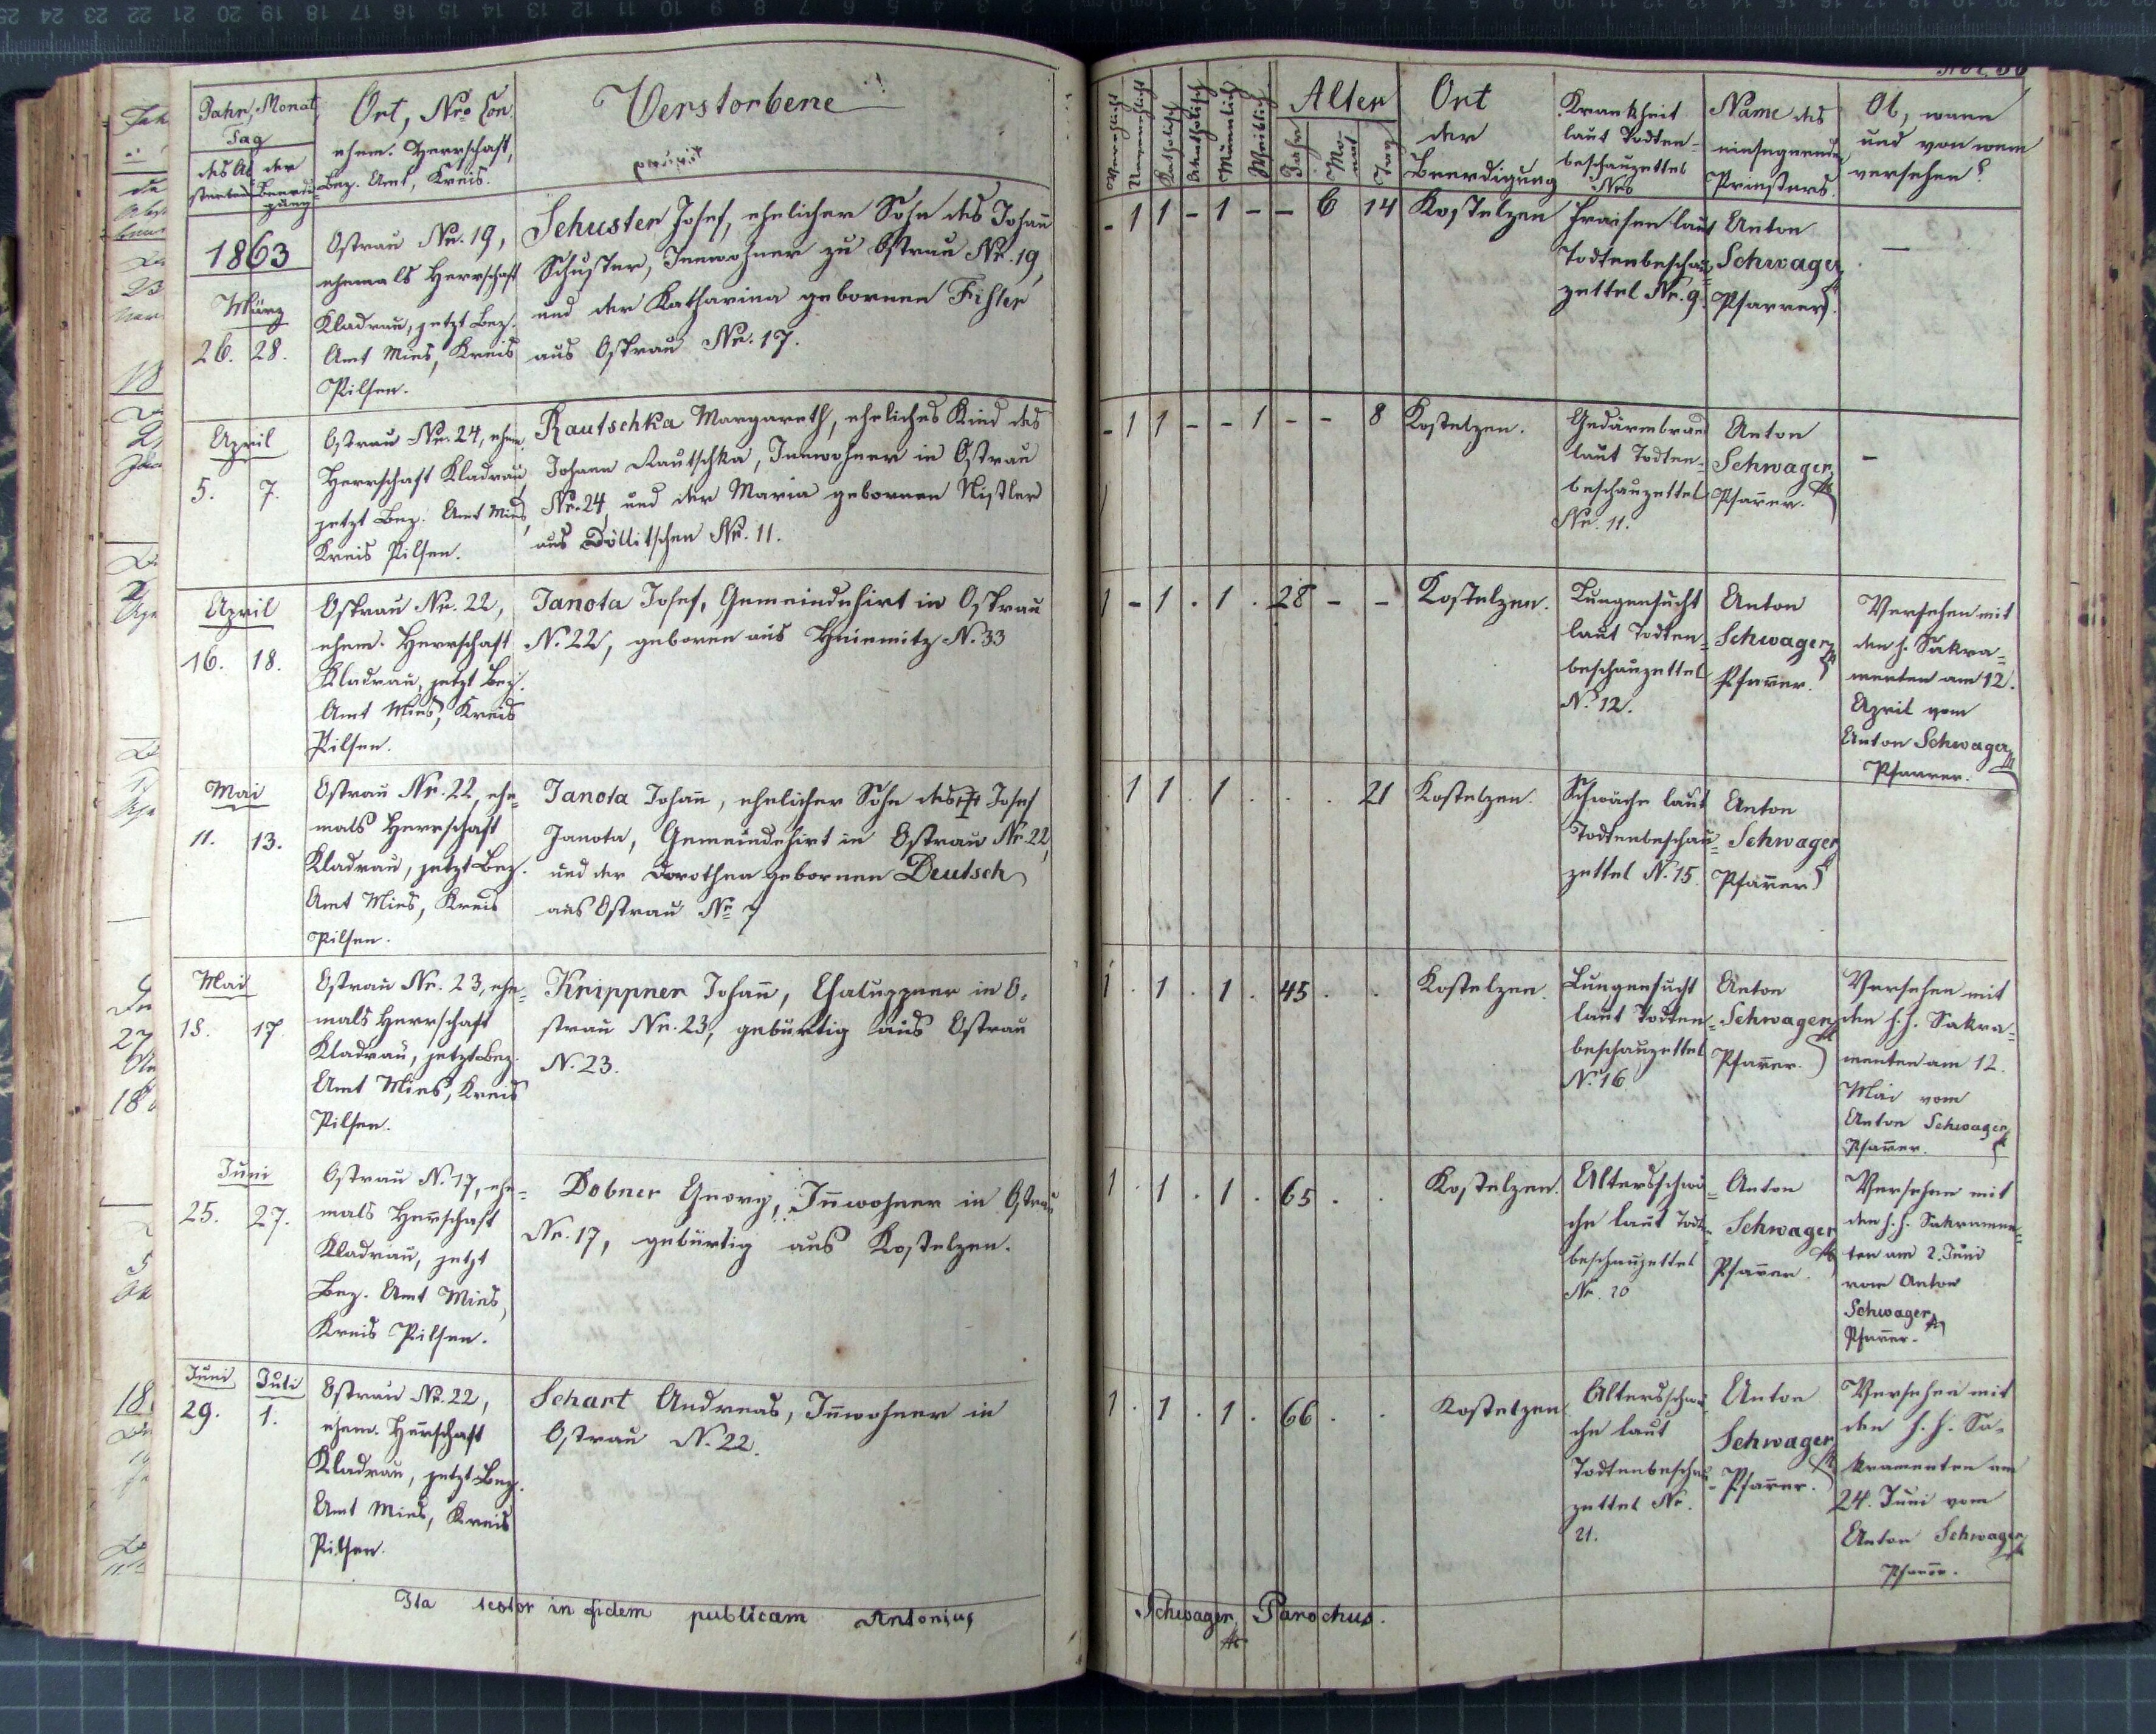 Jahr, Monat,
Tag
des Ab der
sterbens Beerdi
gung
Ort, Nro Con.
ehem. Herrschaft,
Bez. Amt, Kreis.
Verstorbene
1863
März
26. 28.
Ostrau Nr. 19,
ehemals Herrschaft
Kladrau, jetzt Bez.
Amt Mies, Kreis
Pilsen.
Schuster Josef, ehelicher Sohn des Johann
Schuster, Inwohner zu Ostrau Nr. 19,
und der Katharina gebornen Fißler
aus Ostrau Nr. 17.
April
5. 7.
Ostrau Nr. 24, ehem.
Herrschaft Kladrau,
jetzt Bez. Amt Mies,
Kreis Pilsen.
Rautschka Margareth, eheliches Kind des
Johann Rautschka, Innwohner in Ostrau
Nr. 24 und der Maria gebornen Nistler
aus Döllitschen Nr. 11.
April
16. 18.
Ostrau Nr. 22,
ehem. Herrschaft
Kladrau, jetzt Bez.
Amt Mies, Kreis
Pilsen.
Janota Josef, Gemeindehirt in Ostrau
N. 22, geboren aus Hniemitz N. 33
Mai
11. 13.
Ostrau Nr. 22, ehe=
mals Herrschaft
Kladrau, jetzt Bez.
Amt Mies, Kreis
Pilsen.
Janota Johañ, ehelicher Sohn des Josef
Janota, Gemeindehirt in Ostrau Nr. 22,
und der Dorothea gebornen Deutsch
aus Ostrau Nr 7
Mai
15. 17.
Ostrau Nr. 23, ehe=
mals Herrschaft
Kladrau, jetzt Bez.
Amt Mies, Kreis
Pilsen.
Krippner Johañ, Chaluppner in O=
strau Nr. 23, gebürtig aus Ostrau
N. 23.
Juni
25. 27.
Ostrau N. 17, ehe=
mals Herschaft
Kladrau, jetzt
Bez. Amt Mies,
Kreis Pilsen.
Dobner Georg, Iñwohner in Ostrau
Nr. 17, gebürtig aus Kostelzen.
Juni Juli
29. 1.
Ostrau Nr. 22,
ehem. Herschaft
Kladrau, jetzt Bez.
Amt Mies, Kreis
Pilsen.
Schart Andreas, Iñwohner in
Ostrau N. 22.
Ita testor in fidem publicam Antonius
Verehelicht
Unverehelicht
Katholisch
Akatholisch
Männlich
Weiblich
Alter
Jahr
Mo=
nat
Tag
Ort
der
Beerdigung
Krankheit
laut Todten=
beschauzettel
Nro
Name des
einsegnenden
Priesters.
Ob, wann
und von wem
versehen?
- 1 1 - 1 - - 6 14 Kostelzen
Fraisen laut
Todtenbeschau=
zettel Nr. 9.
Anton
Schwager
Pfarrer.
—
- 1 1 - - 1 - - 8 Kostelzen.
Gedärmbrand
laut Todten=
beschauzettel
Nr. 11.
Anton
Schwager
Pfarer.
-
1 - 1 . 1 . 28 - - Kostelzen.
Lungensucht
laut Todten=
beschauzettel
N. 12.
Anton
Schwager
Pfarer.
Versehen mit
den h. Sakra=
menten am 12.
April vom
Anton Schwager
Pfarrer.
. 1 1 . 1 . . . 21 Kostelzen.
Schwäche laut
Todtenbeschau=
zettel N. 15.
Anton
Schwager
Pfarer
1 . 1 . 1 . 45 . . Kostelzen.
Lungensucht
laut Todten=
beschauzettel
N. 16
Anton
Schwager
Pfarer.
Versehen mit
den h. h. Sakra=
menten am 12.
Mai vom
Anton Schwager
Pfarer.
1 . 1 . 1 . 65 . . Kostelzen.
Altersschwä=
che laut Todten
beschauzettel
Nr. 20
Anton
Schwager
Pfarer.
Versehen mit
den h. h. Sakramen=
ten am 2. Juni
vom Anton
Schwager
Pfarer.
1 . 1 . 1 . 66 . . Kostelzen
Altersschwä
che laut
Todtenbeschau=
zettel Nr.
21.
Anton
Schwager
Pfarer.
Versehen mit
den h. h. Sa=
kramenten am
24. Juni vom
Anton Schwager
Pfarer.
Schwager Parochus.